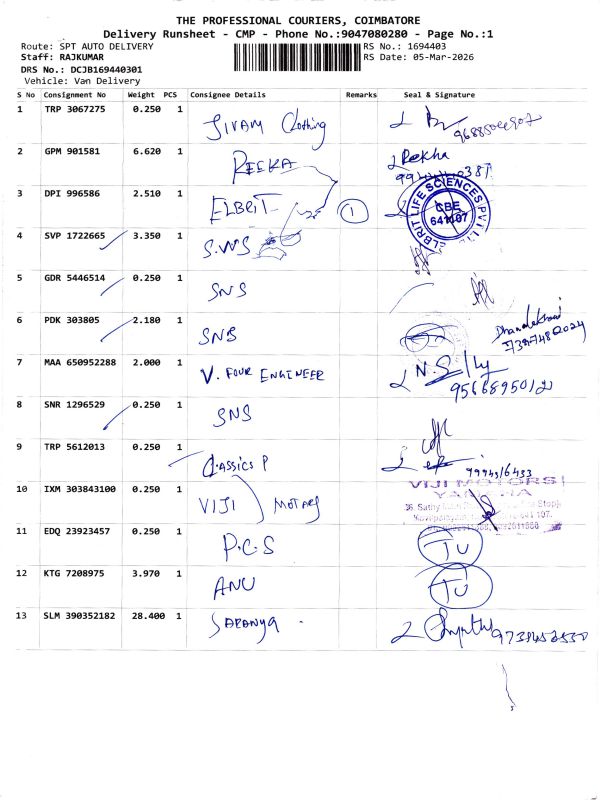 THE PROFESSIONAL COURIERS, COIMBATORE
Delivery Runsheet - CMP - Phone No.:9047080280 - Page No.:1
Route: SPT AUTO DELIVERY
RS No.: 1694403
Staff: RAJKUMAR
RS Date: 05-Mar-2026
DRS No.: DCJB169440301
Vehicle: Van Delivery
S No Consignment No Weight PCS Consignee Details Remarks Seal & Signature
1 TRP 3067275 0.250 1 Clothing
2 GPM 901581 6.620 1 REEKA Rekha
3 DPI 996586 2.510 1 ELBRIT 1
ELBRIT LIFE SCIENCES PVT LTD
CBE
641107
4 SVP 1722665 3.350 1 S.WS
5 GDR 5446514 0.250 1 SNS
6 PDK 303805 2.180 1 SNS
7 MAA 650952288 2.000 1 V. FOUR ENGINEER
8 SNR 1296529 0.250 1 SNS
9 TRP 5612013 0.250 1 Classics P
10 IXM 303843100 0.250 1 VIJI MOTORS
VIJI MOTORS
YAMAHA
11 EDQ 23923457 0.250 1 P.C.S TU
12 KTG 7208975 3.970 1 ANU TU
13 SLM 390352182 28.400 1 SARANYA